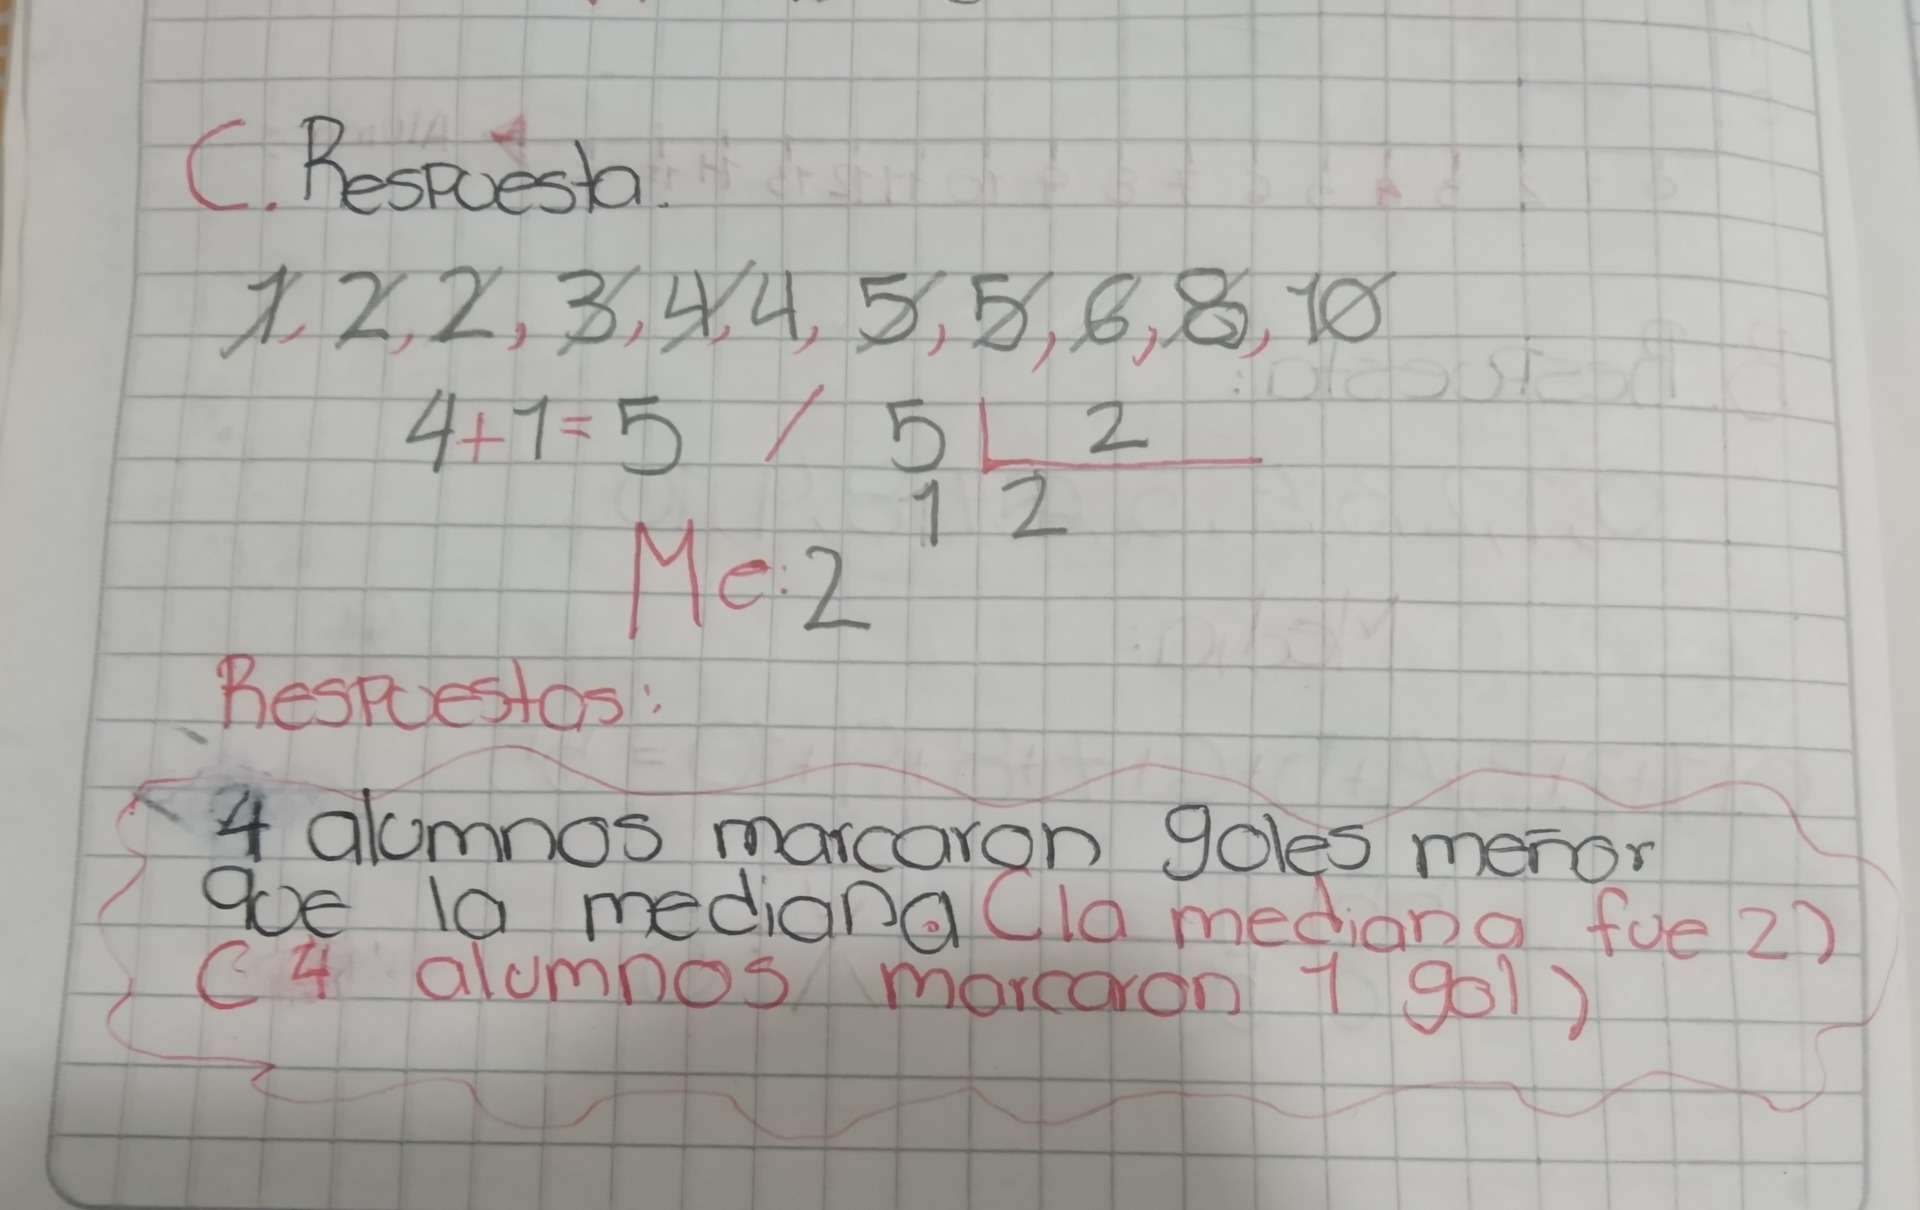 C. Respuesta.
1, 2, 2, 3, 4, 4, 5, 5, 6, 8, 10
4+1=5 / 5 2
1 2
Me: 2
Respuestas:
4 alumnos marcaron goles menor
que la mediana. (la mediana fue 2)
(4 alumnos marcaron 1 gol)